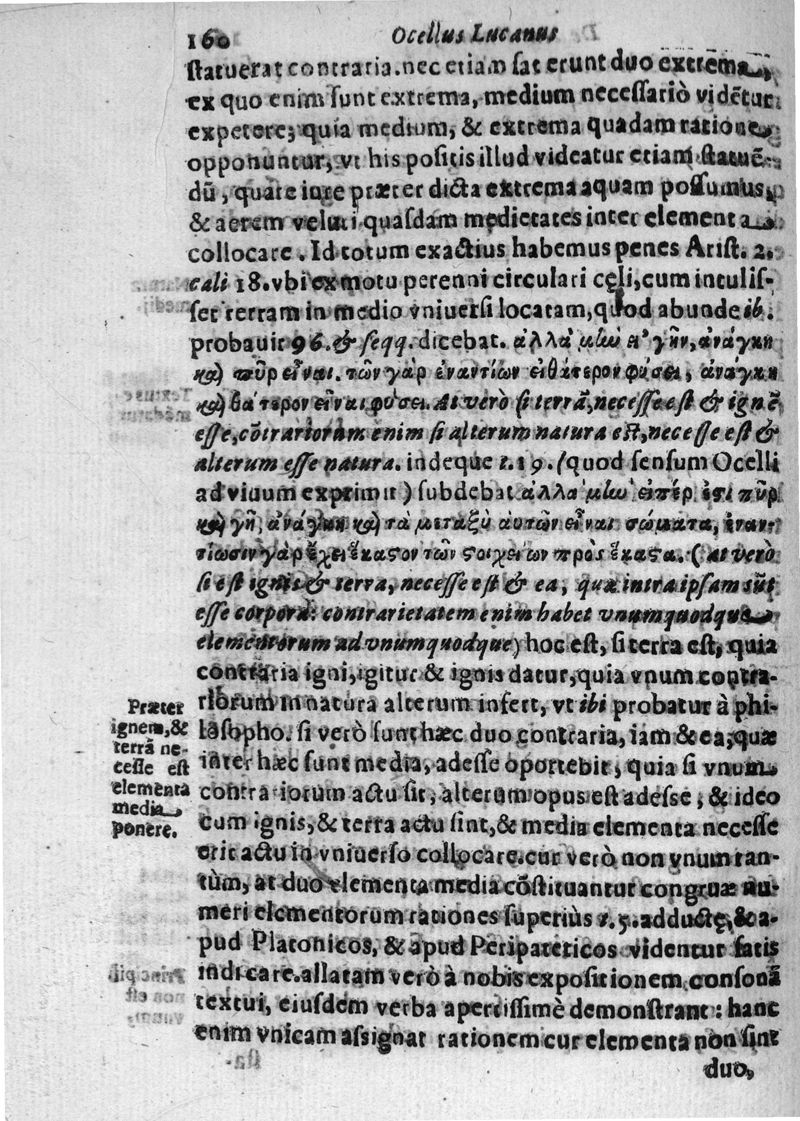 160 Ocellus Lucanus
ſtatuerat contraria. nec etiam ſat erunt duo extrēma,
ex quo enim ſunt extrema, medium neceſſariò vidētur
expetere; quia medium, & extrema quadam ratione
opponuntur, vt his poſitis illud videatur etiam ſtatuē-
dū, quare iure præter dicta extrema aquam poſſumus,
& aerem veluti quaſdam medietates inter elementa
collocare. Id totum exactius habemus penes Ariſt. 2.
cæli 18. vbi ex motu perenni circulari cęli, cum intuliſ-
ſet terram in medio vniuerſi locatam, quod abunde ib.
probauit 96. & ſeqq. dicebat. ἀλλὰ μὴν εἰ γῆν, ἀνάγκη
καὶ πῦρ εἶναι. τῶν γὰρ ἐναντίων εἰ θάτερον φύσει, ἀνάγκη
καὶ θάτερον εἶναι φύσει. At verò ſi terrā, neceſſe eſt & ignē
eſſe, cōtrariorum enim ſi alterum natura eſt, neceſſe eſt &
alterum eſſe natura. indeque t. 19. (quod ſenſum Ocelli
ad viuum exprimit) ſubdebat ἀλλὰ μὴν εἴπερ ἐστι πῦρ
καὶ γῆ, ἀνάγκη καὶ τὰ μεταξὺ αὐτῶν εἶναι σώματα, ἐναν-
τίωσιν γὰρ ἔχει ἕκαστον τῶν στοιχείων πρὸς ἕκαστα. (at verò
ſi eſt ignis & terra, neceſſe eſt & ea, quæ intra ipſam sūt
eſſe corpora: contrarietatem enim habet vnumquodque
elementorum ad vnumquodque) hoc eſt, ſi terra eſt, quia
contraria igni, igitur & ignis datur, quia vnum contra-
riorum in natura alterum infert, vt ibi probatur à phi-
loſopho. ſi verò ſunt hæc duo contraria, iam & ea, quæ
inter hæc ſunt media, adeſſe oportebit, quia ſi vnum
contrariorum actu ſit, alterum opus eſt adeſſe, & ideo
cum ignis, & terra actu ſint, & media elementa neceſſe
erit actu in vniuerſo collocare. cur verò non vnum tan-
tùm, at duo elementa media cōſtituantur congruæ nu-
meri elementorum rationes ſuperiùs t. 5. adductę, & a-
pud Platonicos, & apud Peripateticos videntur ſatis
indicare. allatam verò à nobis expoſitionem conſonā
textui, eiuſdem verba apertiſſimè demonſtrant: hanc
enim vnicam aſsignat rationem cur elementa non ſint
duo,
Præter
ignem, &
terrā ne-
ceſſe eſt
elementa
media
ponere.